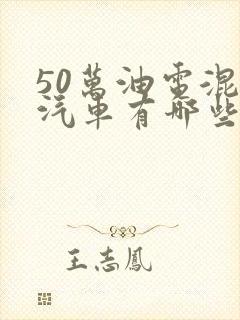 50萬油電混
汽車有哪些
王志鳳